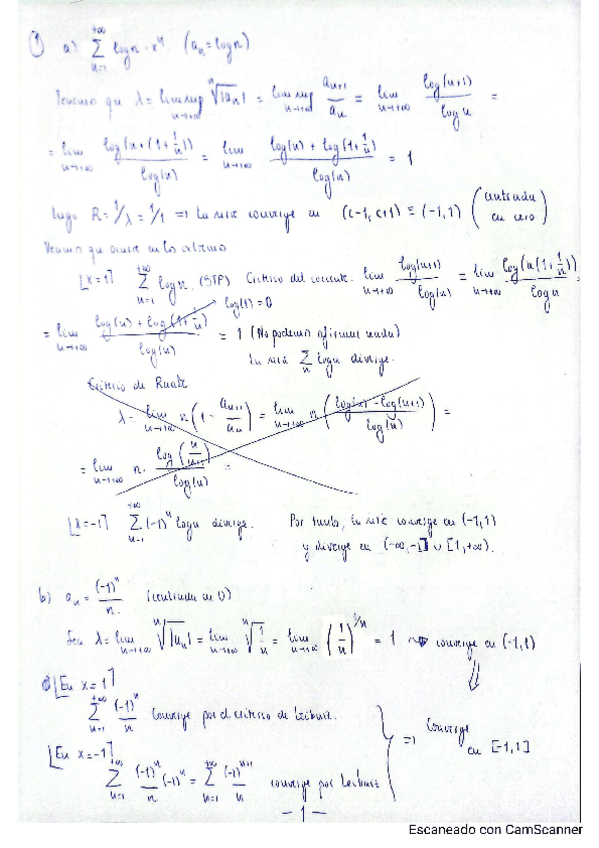 ① a) $\sum_{n=1}^{+\infty} \log n \cdot x^n$ (a_n = log n)
Tenemos que λ = lim sup_{n→+∞} ⁿ√|a_n| = lim sup_{n→+∞} a_{n+1}/a_n = lim_{n→+∞} log(n+1)/log n =
= lim_{n→+∞} log(n·(1+1/n))/log(n) = lim_{n→+∞} (log(n) + log(1+1/n))/log(n) = 1
luego R = 1/λ = 1/1 ⇒ la serie converge en (c-1, c+1) ≡ (-1,1) (centrada en cero)
Veamos que ocurre en los extremos
[x=1] Σ_{n=1}^{+∞} log n. (STP) Criterio del cociente. lim_{n→+∞} log(n+1)/log(n) = lim_{n→+∞} log(n(1+1/n))/log n =
log(1) = 0
= lim_{n→+∞} (log(n) + log(1+1/n))/log(n) = 1 (No podemos afirmar nada)
la serie Σ_n log n diverge.
Criterio de Raabe
λ = lim_{n→+∞} n(1 - a_{n+1}/a_n) = lim_{n→+∞} n((log(n) - log(n+1))/log(n)) =
= lim_{n→+∞} n · log(n/n+1)/log(n) =
[x=-1] Σ_{n=1}^{+∞} (-1)^n log n diverge. Por tanto, la serie converge en (-1,1)
y diverge en (-∞,-1] ∪ [1,+∞).
b) a_n = (-1)^n/n. (centrada en 0)
Sea λ = lim_{n→+∞} ⁿ√|a_n| = lim_{n→+∞} ⁿ√(1/n) = lim_{n→+∞} (1/n)^{1/n} = 1 ⇝ converge en (-1,1)
[En x=1]
Σ_{n=1}^{+∞} (-1)^n/n Converge por el criterio de Leibniz.
⇒ Converge
en [-1,1]
[En x=-1]
Σ_{n=1}^{+∞} (-1)^n/n (-1)^n = Σ_{n=1}^{+∞} (-1)^{n+1}/n converge por Leibniz
- 1 -
Escaneado con CamScanner